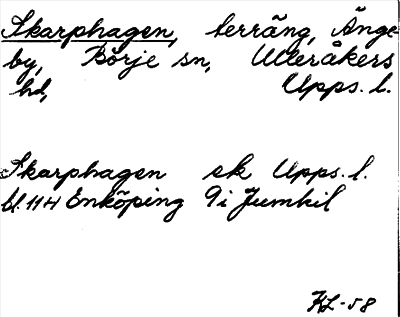 Skarphagen, terräng, Änge
by, Börje sn, Ulleråkers
hd, Upps. l.
Skarphagen ek Upps. l.
bl. 114 Enköping 9i Jumkil
KL-58